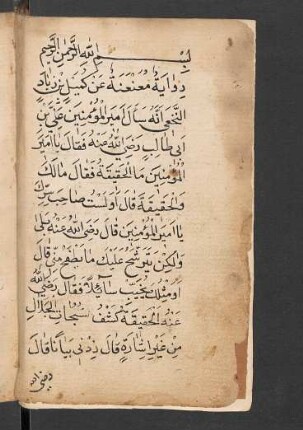 بسم الله الرحمن الرحيم
رواية معنعنة عن كميل بن زياد
النخعي انه سأل امير المؤمنين علي بن
ابي طالب رضي الله عنه فقال يا امير
المؤمنين ما الحقيقة فقال مالك
والحقيقة قال اولست صاحب سرك
يا امير المؤمنين قال رضي الله عنه بلى
ولكن يترشح عليك ما يطفح مني قال
او مثلك يخيب سائلا فقال رضي الله
عنه الحقيقة كشف سبحات الجلال
من غير اشارة قال زدني بيانا قال
رضي الله